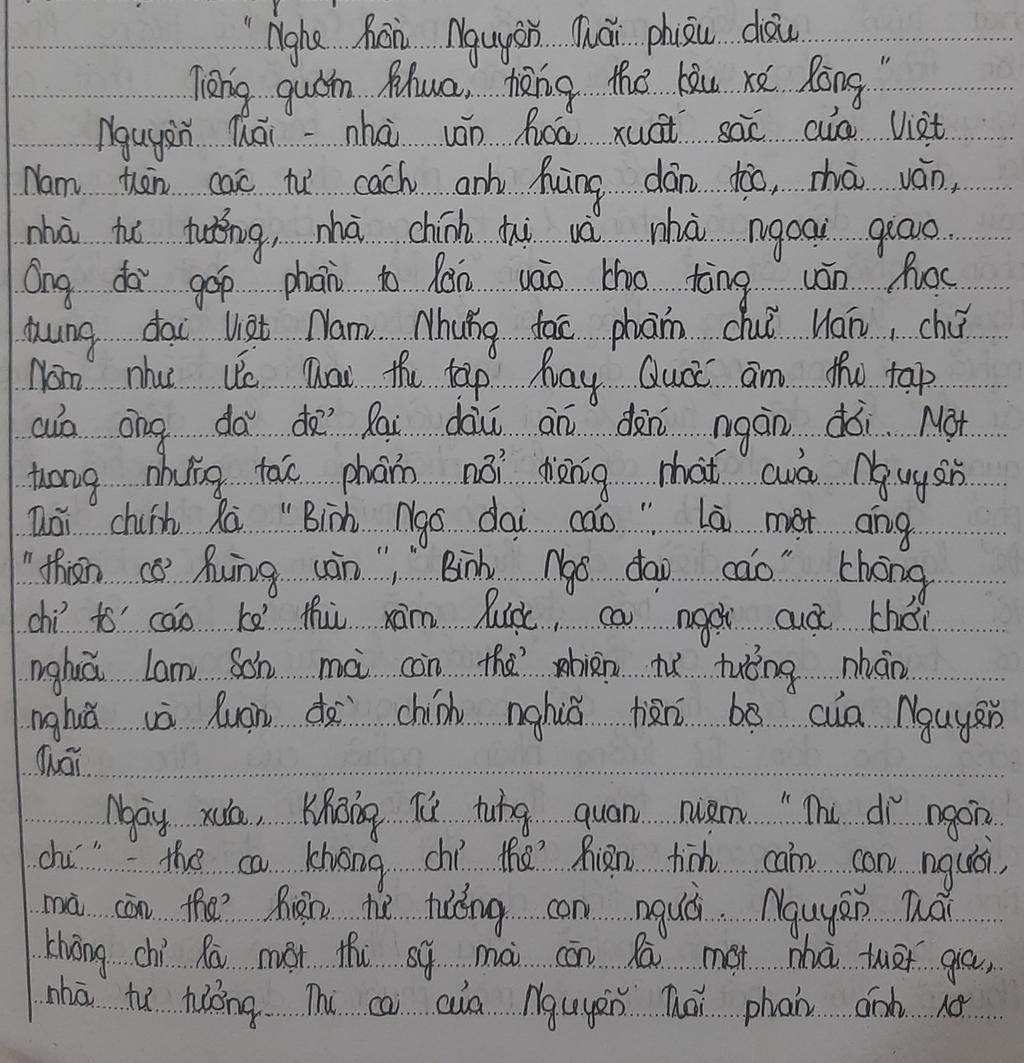 "Nghe hồn Nguyễn Trãi phiêu diêu
Tiếng gươm khua, tiếng thơ kêu xé lòng"
Nguyễn Trãi - nhà văn hoá xuất sắc của Việt
Nam trên các tư cách anh hùng dân tộc, nhà văn,
nhà tư tưởng, nhà chính trị và nhà ngoại giao.
Ông đã góp phần to lớn vào kho tàng văn học
trung đại Việt Nam. Những tác phẩm chữ Hán, chữ
Nôm như Ức Trai thi tập hay Quốc âm thi tập
của ông đã để lại dấu ấn đến ngàn đời. Một
trong những tác phẩm nổi tiếng nhất của Nguyễn
Trãi chính là "Bình Ngô đại cáo". Là một áng
"thiên cổ hùng văn", "Bình Ngô đại cáo" không
chỉ tố cáo kẻ thù xâm lược, ca ngợi cuộc khởi
nghĩa Lam Sơn mà còn thể hiện tư tưởng nhân
nghĩa và luận đề chính nghĩa tiến bộ của Nguyễn
Trãi.
Ngày xưa, Khổng Tử từng quan niệm "Thi dĩ ngôn
chí" - thơ ca không chỉ thể hiện tình cảm con người,
mà còn thể hiện tư tưởng con người. Nguyễn Trãi
không chỉ là một thi sỹ mà còn là một nhà triết gia,
nhà tư tưởng. Thi ca của Nguyễn Trãi phản ánh rõ